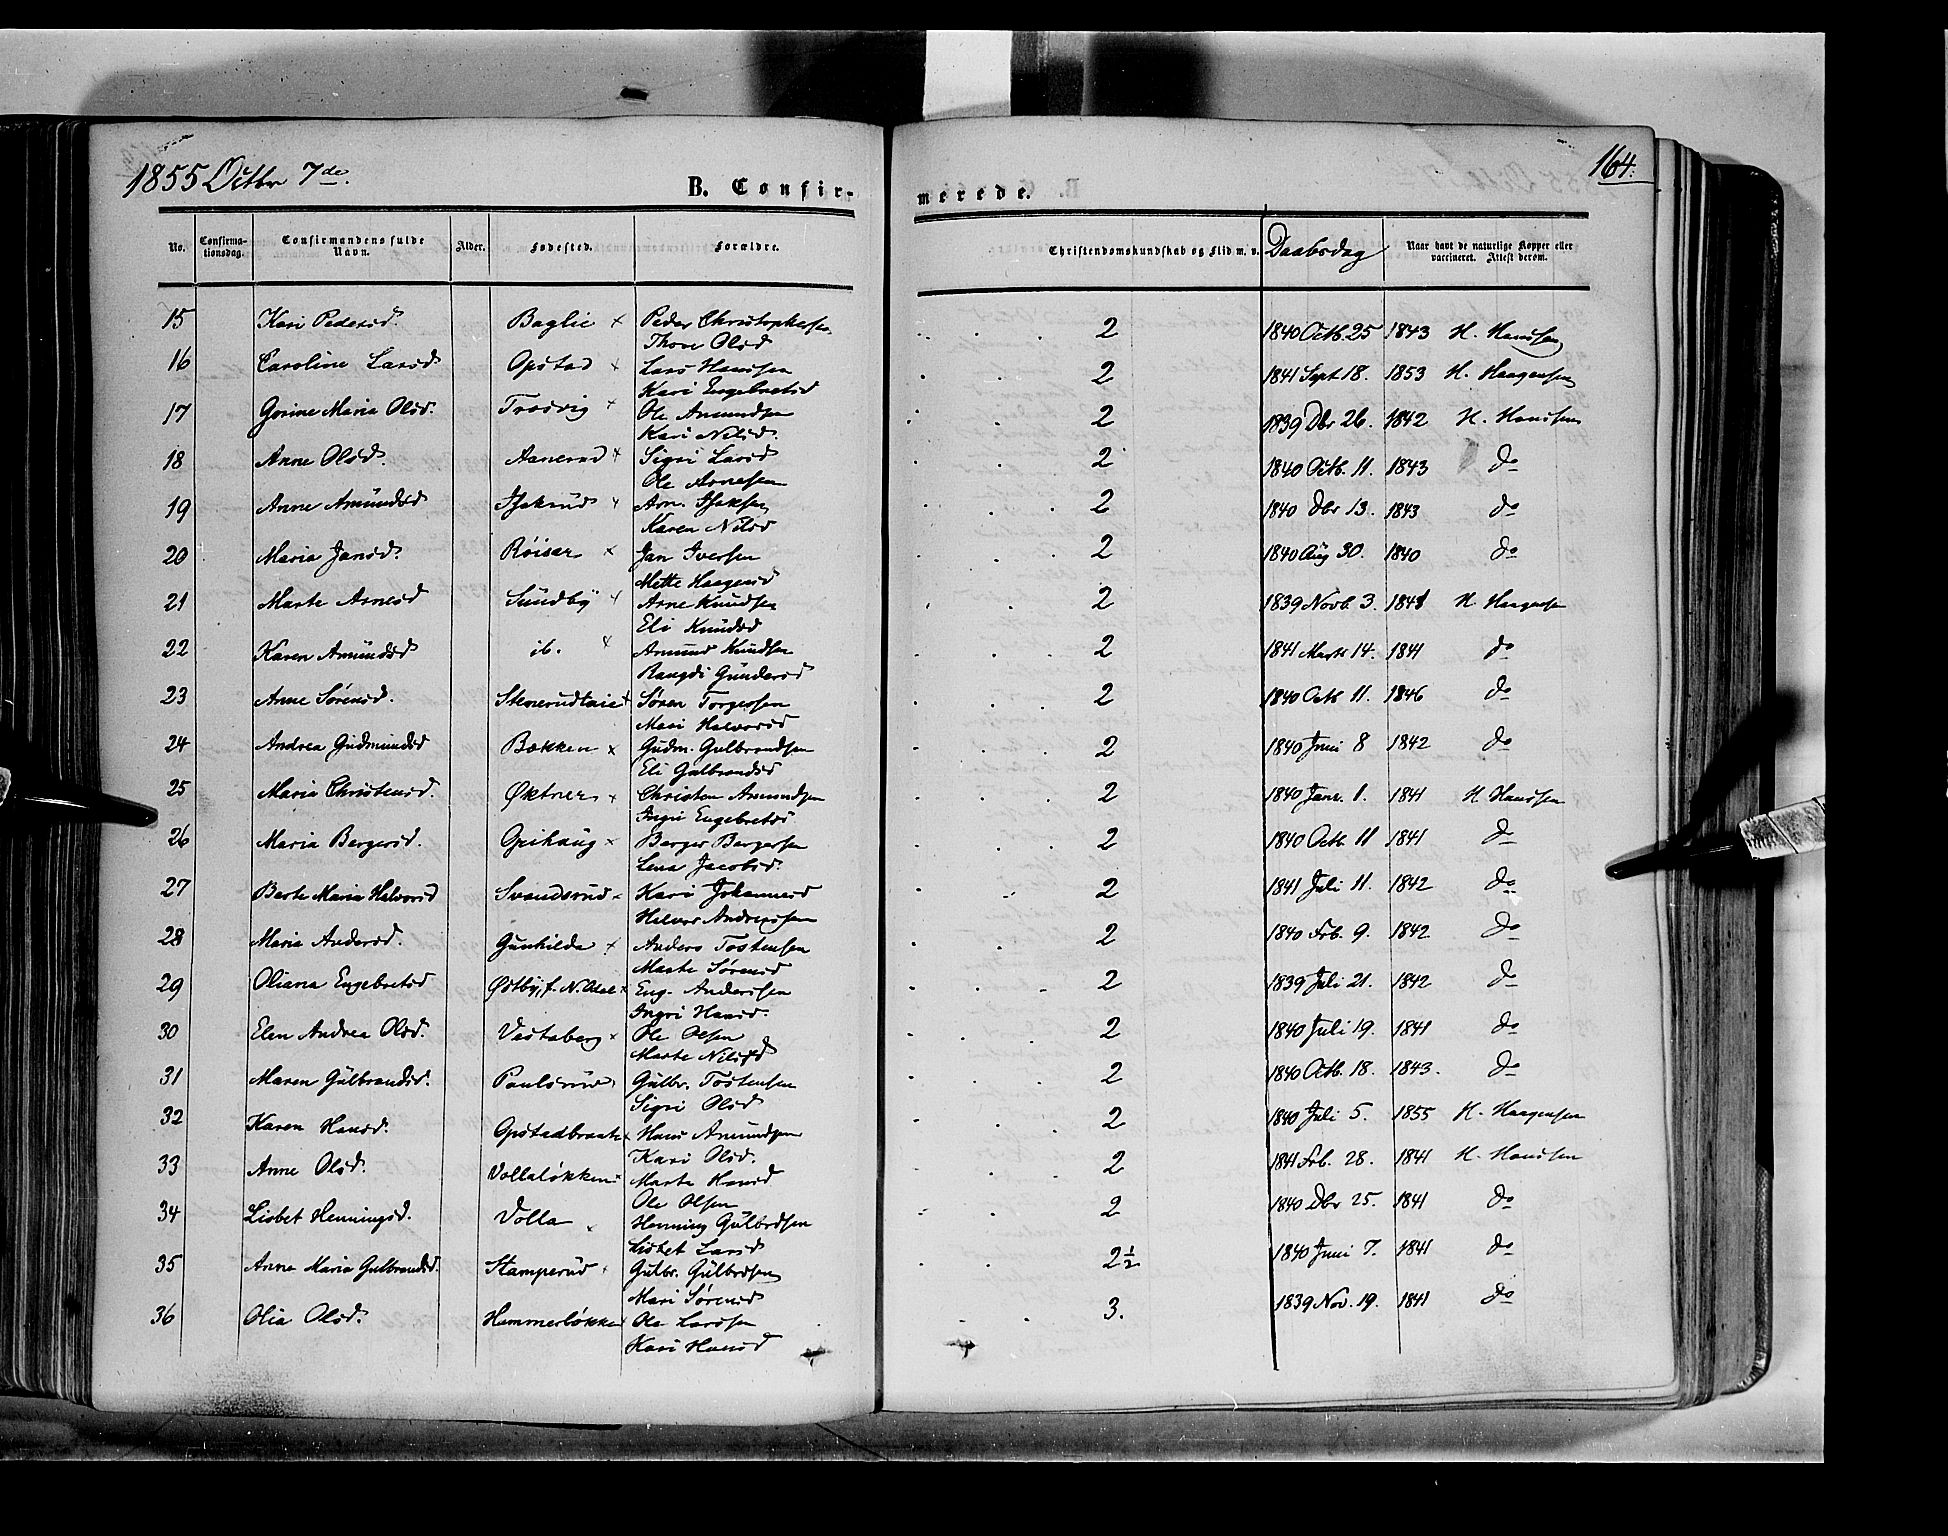 1855 Octbr 7de.
164.
B. Confir-
merede.
No.
Confirma-
tionsdag.
Confirmandens fulde
Navn.
Alder.
Fødested.
Forældre.
Christendomskundskab og Flid m. v.
Daabsdag
Naar havt de naturlige Kopper eller
vaccineret. Attest derom.
15 Kari Pedersd. Baglie x Peder Christophersen 2 1840 Octb. 25 1843 H. Hanssen
Thore Olsd
16 Caroline Larsd Opstad x Lars Hanssen 2 1841 Sept 18. 1853 H. Haagensen
Kari Engebretsd
17 Gorine Maria Olsd. x Ole Amundsen 2 1839 Dbr 26. 1842 H. Hanssen
Kari Nilsd.
18 Anne Olsd. Aanerud x Sigri Larsd 2 1840 Octb. 11. 1843 do
Ole Arnesen
19 Anne Amundsd x Am. 2 1840 Dbr 13. 1843 do
Karen Nilsd
20 Maria Jansd. Røiser x Jan Iversen 2 1840 Aug 30. 1840 do
Mette Haagensd
21 Marte Arnesd Sundby x Arne Knudsen 2 1839 Novb. 3. 1841 H Haagensen
Eli Knudsd
22 Karen Amundsd ib. x Amund Knudsen 2 1841 Marts 14. 1841 do
Rangdi Gundersd
23 Anne Sørensd. x Søren Torgersen 2 1840 Octb 11. 1846 do
Mari Halvorsd
24 Andrea Gudmundsd Bækken x Gudm. Gulbrandsen 2 1840 Juni 8 1842 do
Eli Gulbrandsd
25 Maria Christensd. Øktner x Christen Amundsen 2 1840 Janr. 1. 1841 H Hanssen
Ingri Engebretsd
26 Maria Bergersd. Grihaug x Berger Bergersen 2 1840 Octb. 11 1841 do
Lena Jacobsd.
27 Berte Maria Halvorsd Svendsrud x Kari Johannesd 2 1841 Juli 11. 1842 do
Halvor Andreassen
28 Maria Andersd. Gunhilde x Anders Tostensen 2 1840 Feb. 9. 1842 do
Marte Sørensd
29 Oliana Engebretsd Østby, f. N. Odal x Eng. Anderssen 2 1839 Juli 21. 1842 do
Ingri Hansd.
30 Elen Andrea Olsd. Vestaberg x Ole Olsen 2 1840 Juli 19. 1841 do
Marte Nilsd
31 Maren Gulbrandsd. Paulsrud Gulbr. Tostensen 2 1840 Octb. 18. 1843. do
Sigri Olsd
32 Karen Hansd. Opstadbraate x Hans Amundsen 2 1840 Juli 5. 1855 H. Haagensen
Kari Olsd.
33 Anne Olsd. Vollaløkken x Marte Hansd 2 1841 Feb. 28. 1841 H. Hanssen
Ole Olsen
34 Lisbet Henningsd. Volla x Henning Gulbrdsen 2 1840 Dbr 25. 1841 do
Lisbet Larsd
35 Anne Maria Gulbrandsd. Stamperud x Gulbr. Gulbrdsen 2½ 1840 Juni 7. 1841 do
Mari Sørensd
36 Olia Olsd. Hammerløkken Ole Larssen 3. 1839 Nov. 19. 1841 do
Kari Hansd